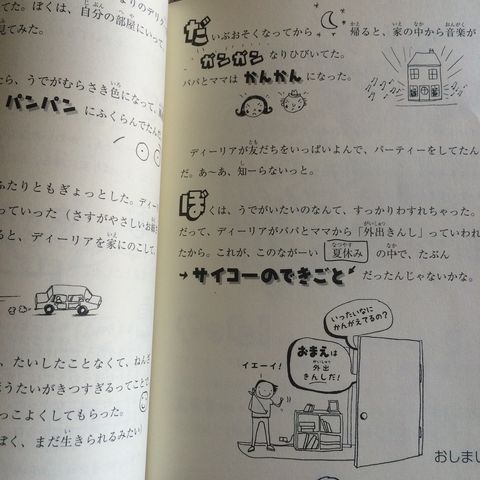 だいぶおそくなってから 帰ると、家の中から音楽が
ガンガン なりひびいてた。
パパとママは かんかん になった。
ディーリアが友だちをいっぱいよんで、パーティーをしてたん
だ。あ〜あ、知ーらないっと。
ぼくは、うでがいたいのなんて、すっかりわすれちゃった。
だって、ディーリアがパパとママから「外出きんし」っていわれ
たから。これが、このながーい 夏休み の中で、たぶん
サイコーのできごと だったんじゃないかな。
いったいなに
かんがえてるの?
おまえは
外出
きんしだ!
イエーイ!
おしまい
てた。ぼくは、自分の部屋にいって、
見てみた。
たら、うでがむらさき色になって、
パンパン にふくらんでたんだ
ふたりともぎょっとした。ディー
っていった(さすがやさしいお
ると、ディーリアを家にのこして、
、たいしたことなくて、ねんざ
ほうたいがきつすぎるってことで
っこよくしてもらった。
ぼく、まだ生きられるみたい)